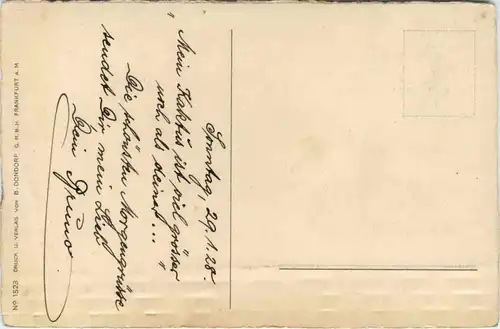 Sonntag, 29.1.28.
"Mein Kaktus ist viel grösser
noch als deiner..."
Die schönsten Morgengrüsse
sendet Dir mein Lieb
Dein Bruno
No 1523 DRUCK U. VERLAG VON B. DONDORF G.M.B.H. FRANKFURT A.M.